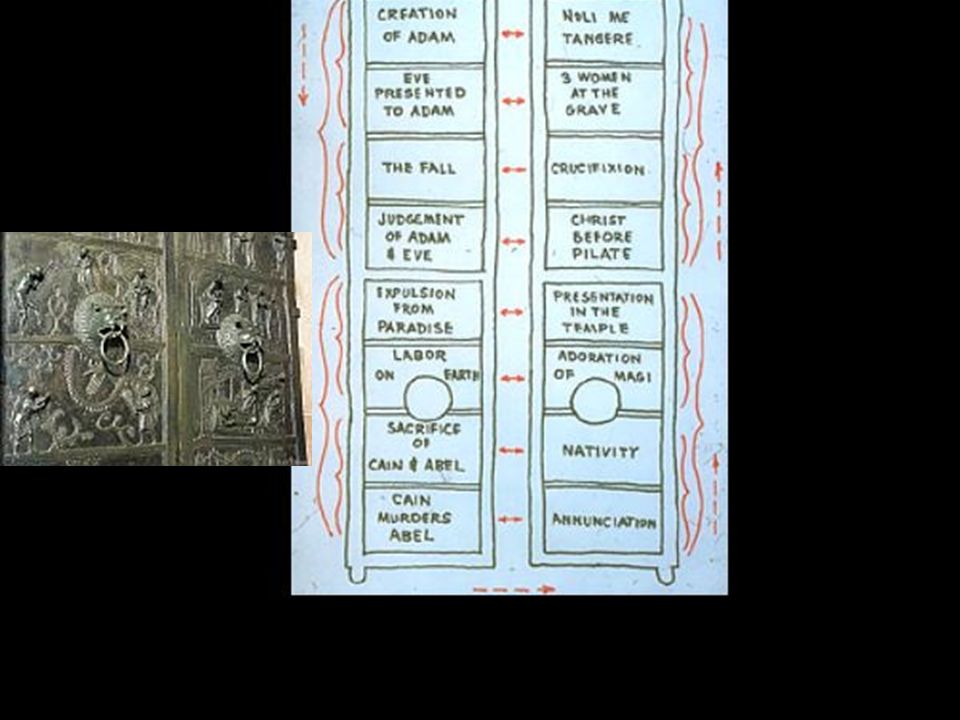 CREATION
OF ADAM
EVE
PRESENTED
TO ADAM
THE FALL
JUDGEMENT
OF ADAM
& EVE
EXPULSION
FROM
PARADISE
LABOR
ON EARTH
SACRIFICE
OF
CAIN & ABEL
CAIN
MURDERS
ABEL
NOLI ME
TANGERE
3 WOMEN
AT THE
GRAVE
CRUCIFIXION
CHRIST
BEFORE
PILATE
PRESENTATION
IN THE
TEMPLE
ADORATION
OF MAGI
NATIVITY
ANNUNCIATION